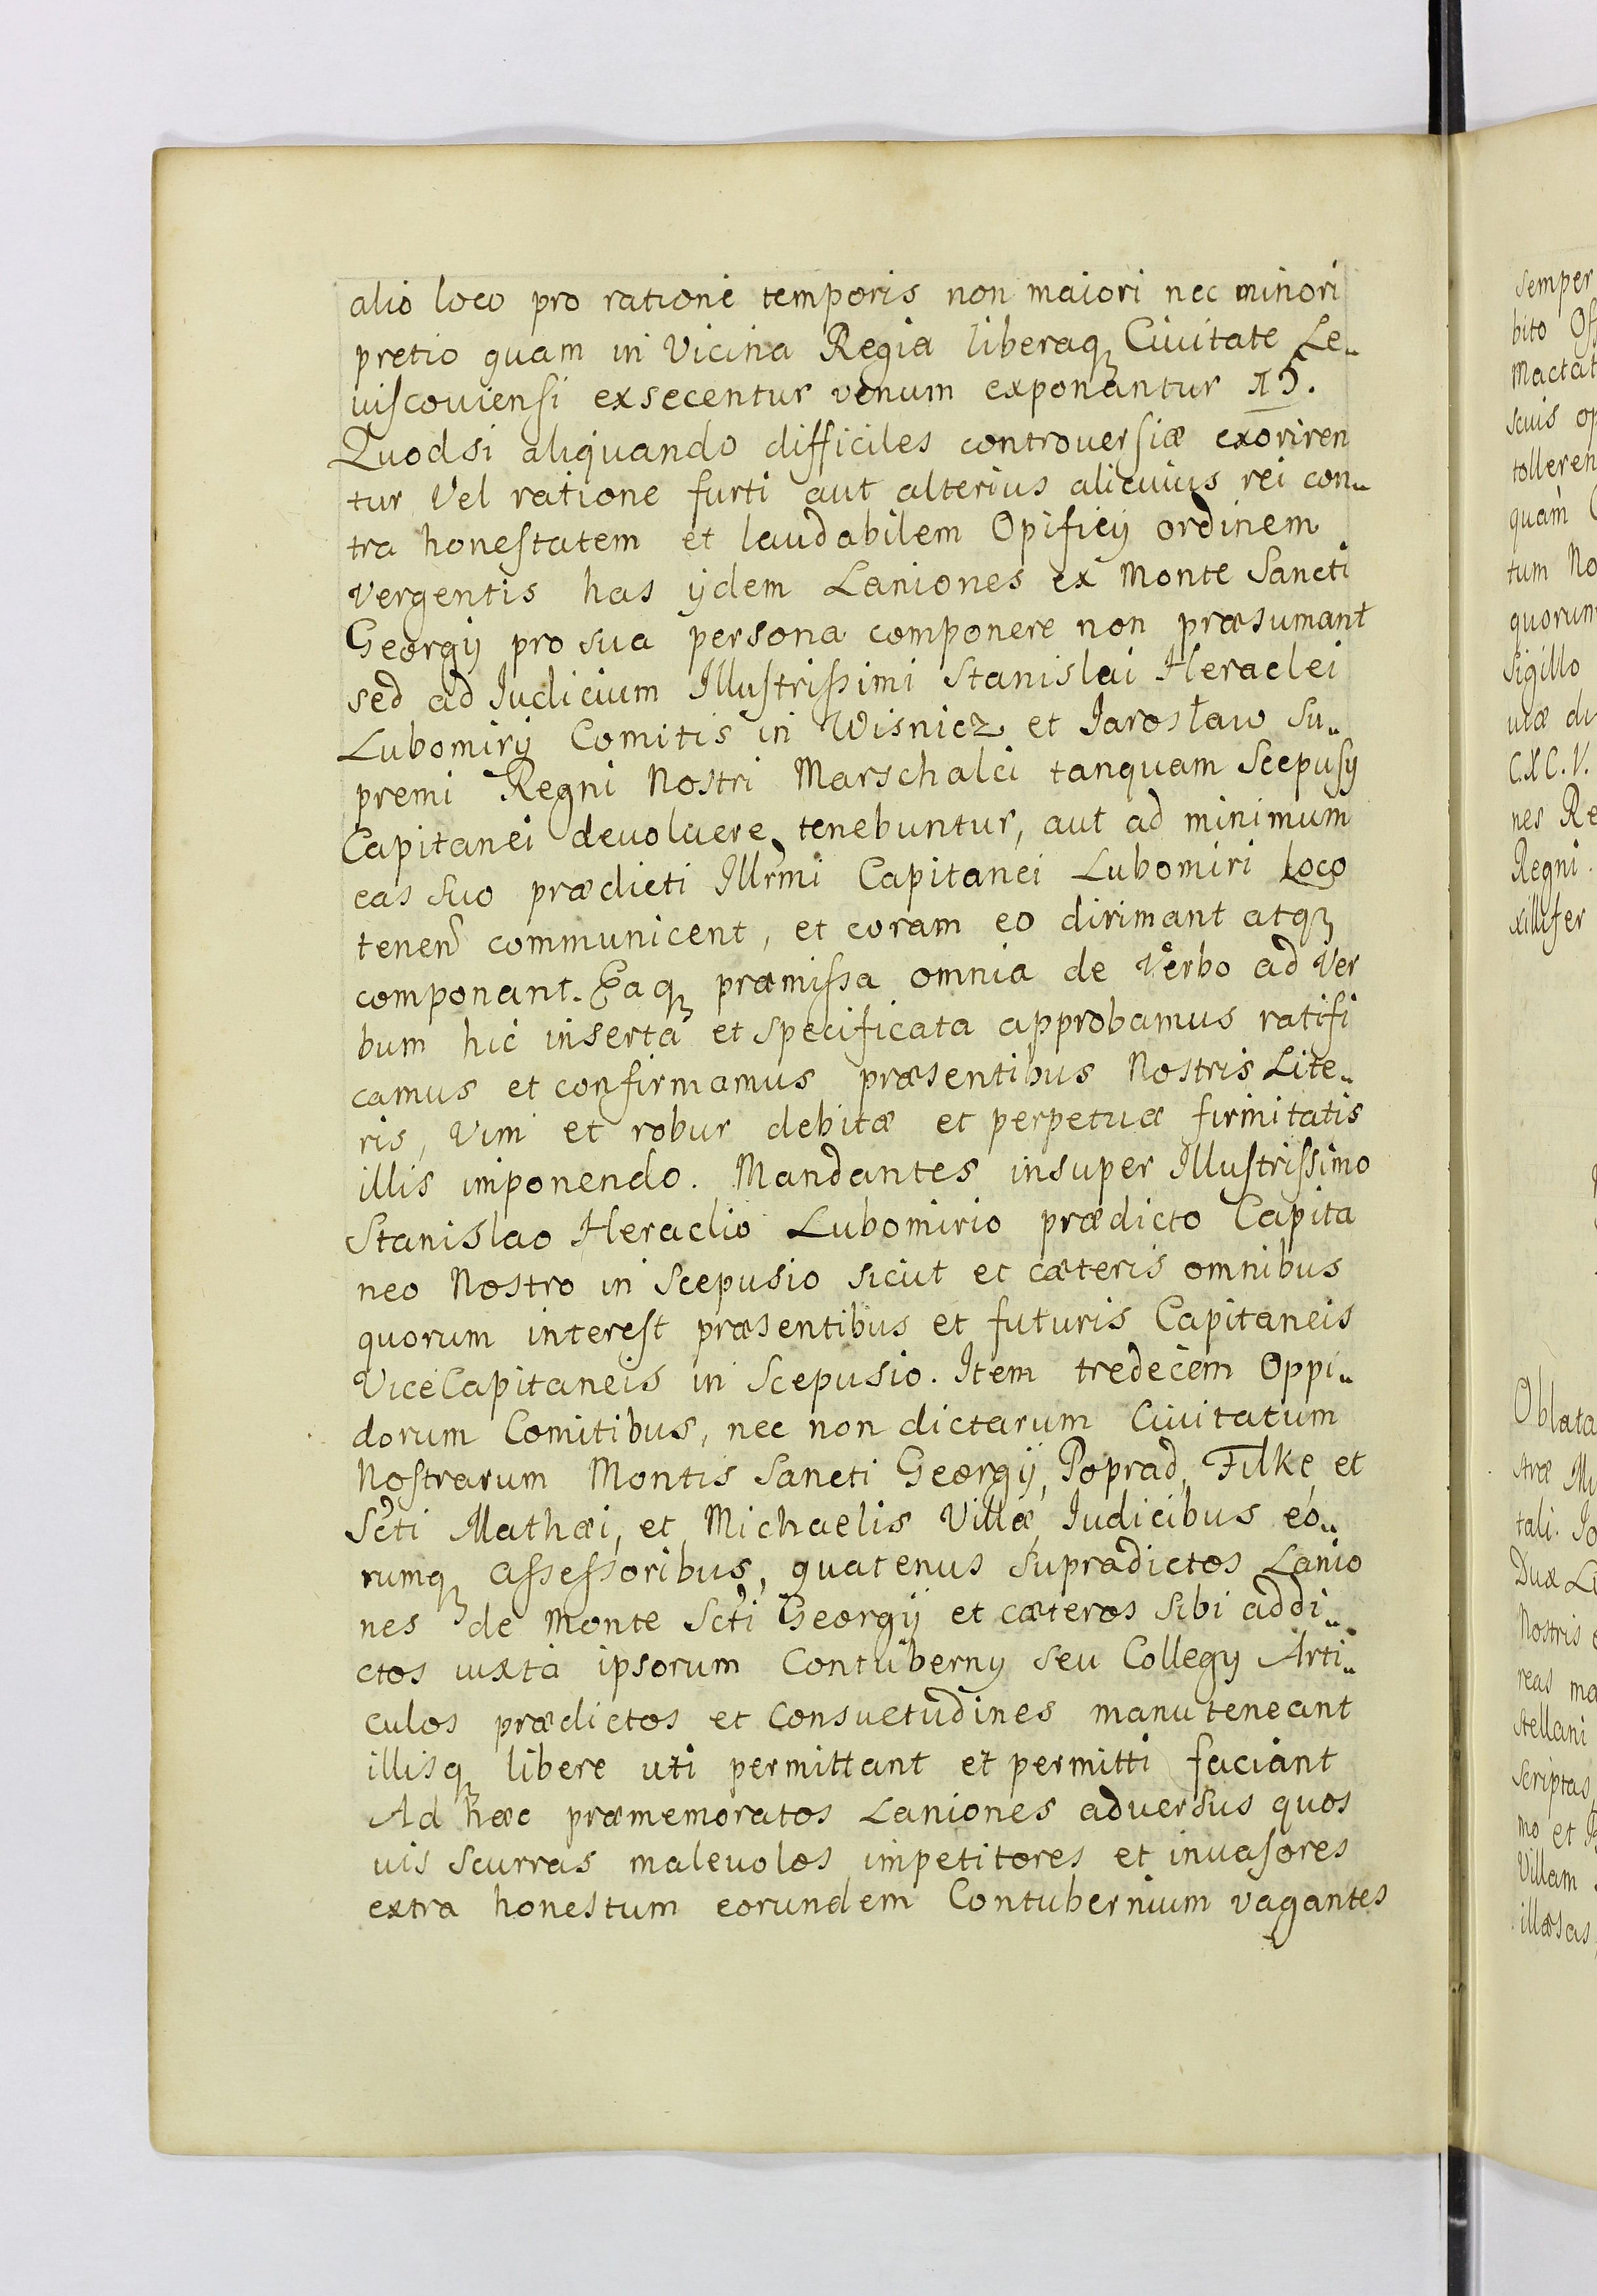 alio loco pro ratione temporis non maiori nec minori
pretio quam in Vicina Regia liberaq Ciuitate Le„
uiscouiensi exsecentur venum exponantur 15.
Quodsi aliquando difficiles controuersiæ exoriren
tur Vel ratione furti aut alterius alicuius rei con„
tra honestatem et laudabilem Opificij ordinem
vergentis has ijdem Laniones ex Monte Sancti
Georgij pro sua persona componere non præsumant
sed ad Iudicium Illustrissimi Stanislai Heraclei
Lubomirij Comitis in Wisnicz et Jarosław Su„
premi Regni Nostri Marschalci tanquam Scepusij
Capitanei deuoluere tenebuntur, aut ad minimum
eas suo prædicti Illrmi Capitanei Lubomiri Loco
tenen communicent, et coram eo dirimant atq
componant. Eaq præmissa omnia de Verbo ad Ver
bum hic inserta et specificata approbamus ratifi
camus et confirmamus præsentibus Nostris Lite„
ris, Vim et robur debitæ et perpetuæ firmitatis
illis imponendo. Mandantes insuper Illustrissimo
Stanislao Heraclio Lubomirio prædicto Capita
neo Nostro in Scepusio sicut et cæteris omnibus
quorum interest præsentibus et futuris Capitaneis
ViceCapitaneis in Scepusio. Item tredecem Oppi„
dorum Comitibus, nec non dictarum Ciuitatum
Nostrarum Montis Sancti Georgij, Poprad, Filke, et
Scti Mathæi, et Michaelis Villæ, Iudicibus eo„
rumq Assessoribus, quatenus supradictos Lanio
nes de Monte Scti Georgij et cæteros sibi addi„
ctos iuxta ipsorum Contubernij seu Collegij Arti„
culos prædictos et Consuetudines manuteneant
illisq libere uti permittant et permitti faciant
Ad hæc præmemoratos Laniones adversus quos
uis scurras maleuolos impetitores et inuasores
extra honestum eorundem Contubernium vagantes
semper
bito
Mactat
scuis
tolleren
quam
tum No
quorum
sigillo
C.X.C.V.
nes Re
Regni
xillifer
Oblata
tali.
Duæ
Nostris
reas ma
stellani
scriptas
mo et
Villam
illæsas